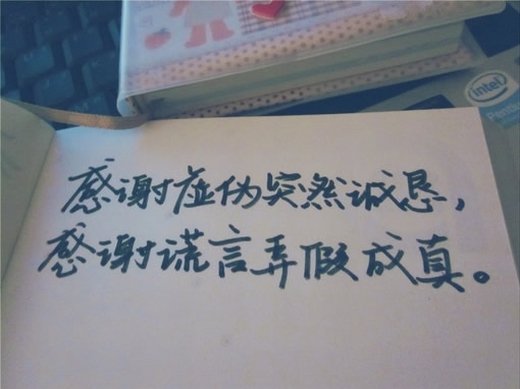 intel
感谢虚伪突然诚恳，
感谢谎言弄假成真。